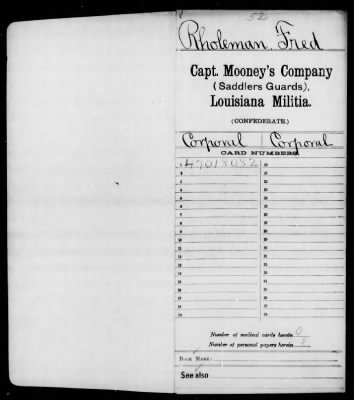 52
Rholeman, Fred
Capt. Mooney's Company
(Saddlers Guards),
Louisiana Militia.
(CONFEDERATE.)
Corporal | Corporal
CARD NUMBERS.
1 47018082 20
2 21
3 22
4 23
5 24
6 25
7 26
8 27
9 28
10 29
11 30
12 31
13 32
14 33
15 34
16 35
17 36
18 37
19 38
Number of medical cards herein 0
Number of personal papers herein 0
BOOK MARK:
See also